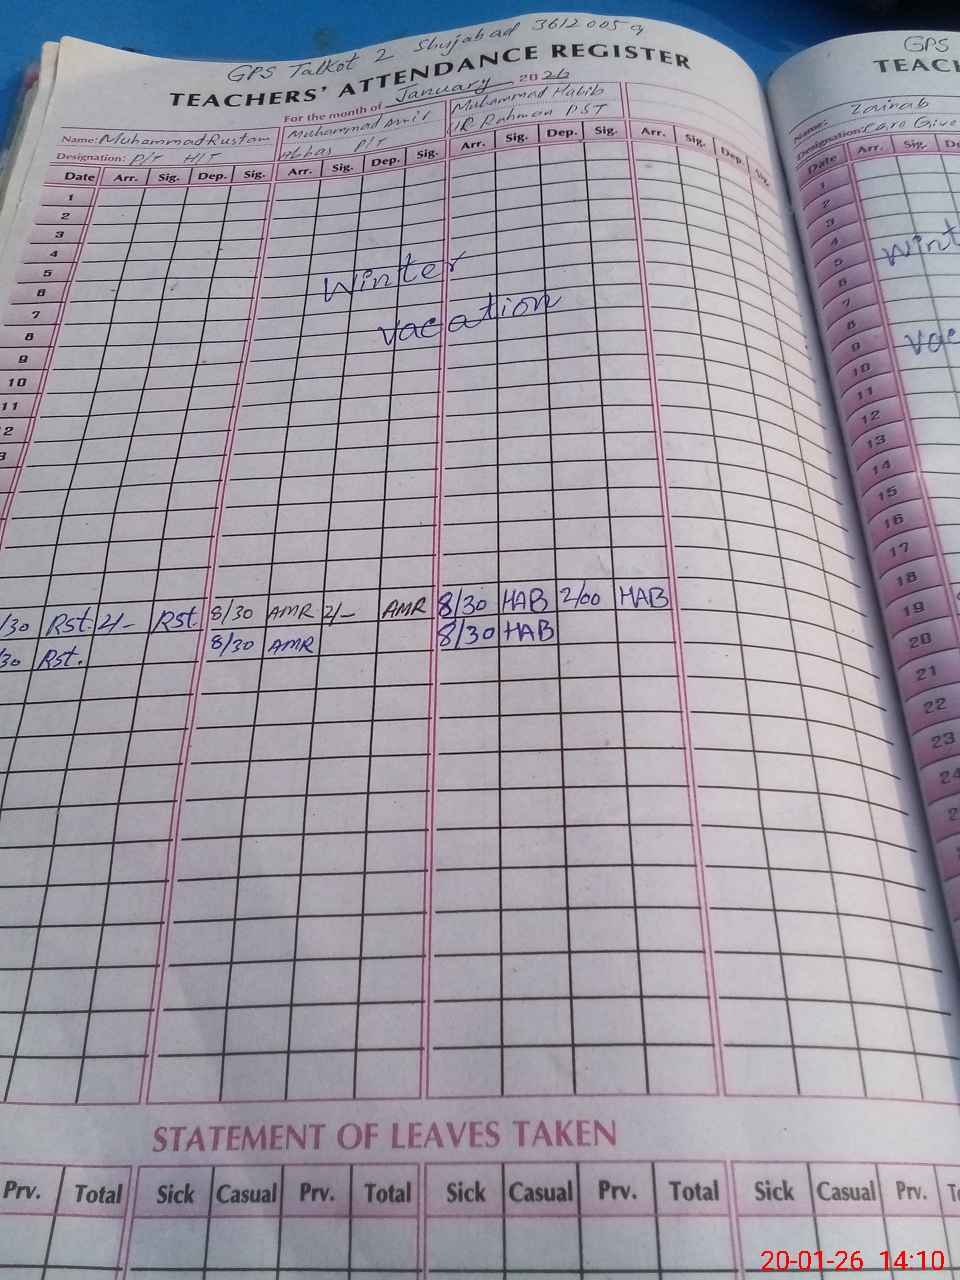 GPS Talkot 2 Shujabad 36120059
TEACHERS' ATTENDANCE REGISTER
For the month of January 2026
Name: Muhammad Rustam
Designation: P/T H/T
Muhammad Amir
Abbas P/T
Muhammad Habib
UR Rahman PST
Date Arr. Sig. Dep. Sig. Arr. Sig. Dep. Sig. Arr. Sig. Dep. Sig. Arr. Sig. Dep. Sig.
1
2
3
4
5
6
7
8
9
10
11
2
3
Winter
vacation
/30 Rst. 2/- Rst. 8/30 AMR 2/- AMR 8/30 HAB 2/00 HAB
/30 Rst. 8/30 AMR 8/30 HAB
STATEMENT OF LEAVES TAKEN
Prv. Total Sick Casual Prv. Total Sick Casual Prv. Total Sick Casual Prv. To
GPS
TEACH
Name: Zainab
Designation: Care Give
Date Arr. Sig. De
1
2
3
4
5
6
7
8
9
10
11
12
13
14
15
16
17
18
19
20
21
22
23
24
2
Wint
vac
20-01-26 14:10